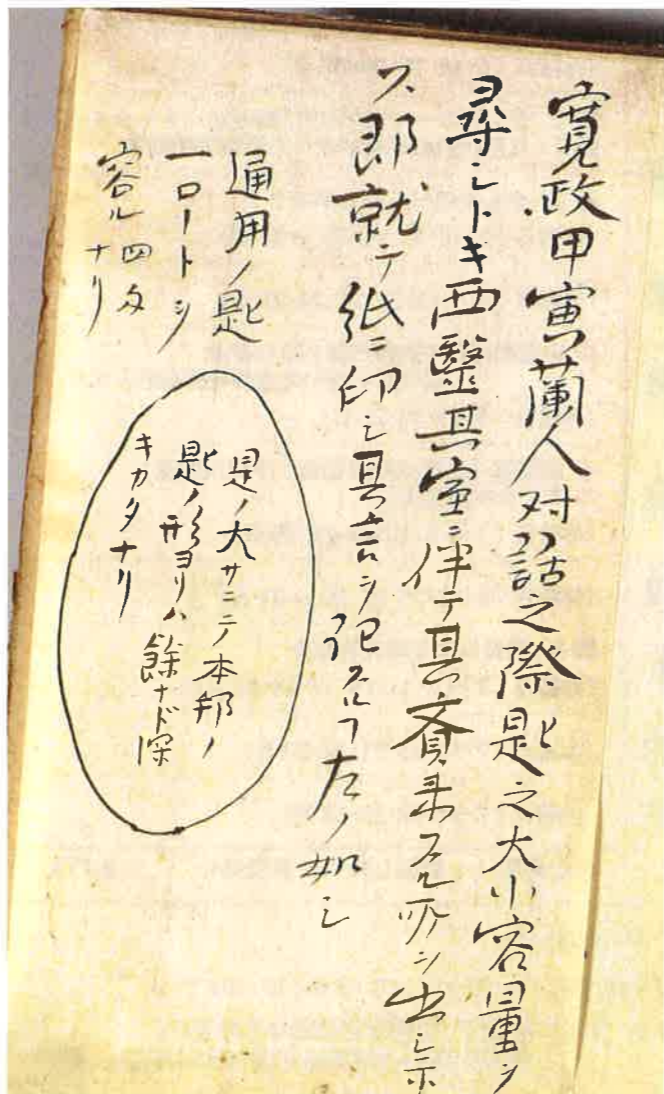 寛政甲寅蘭人対話之際匙之大小容量ヲ
尋シトキ西醫其室ニ伴テ具齎来スル所ヲ出シ示
ス即就テ紙ニ印シ具言ヲ記スルヿ左ノ如シ
通用ノ匙
一ロートヲ
容ル四匁
ナリ
是ノ大サニテ本邦ノ
匙ノ形ヨリハ餘ナド深
キカタナリ